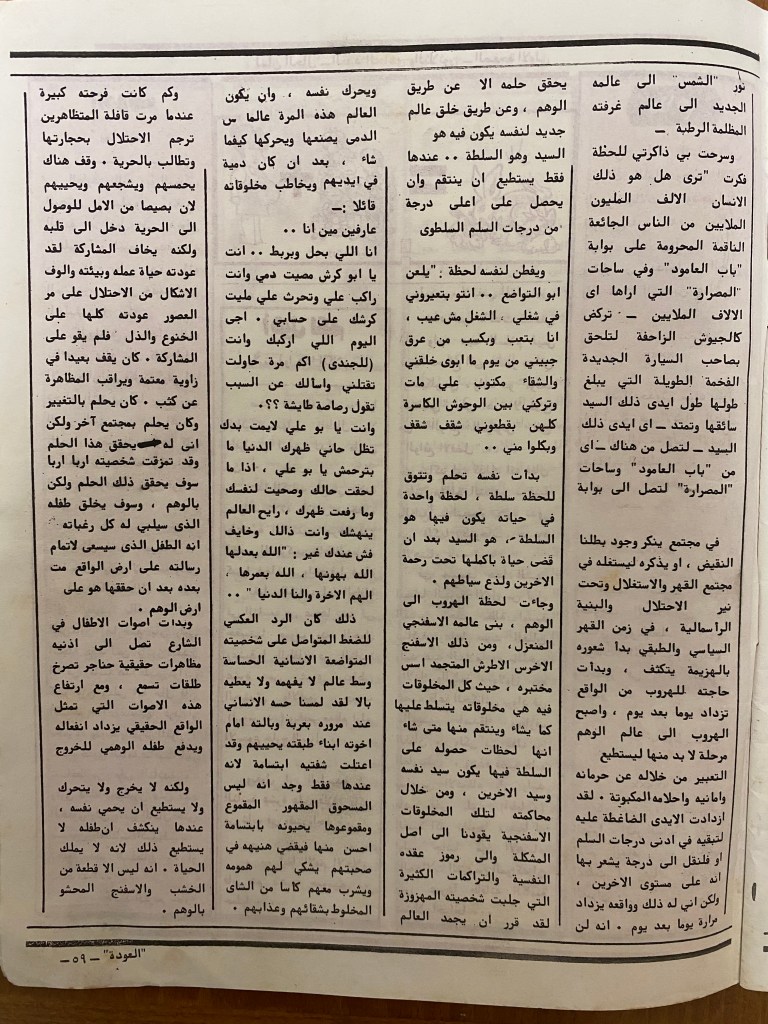 نور "الشمس" الى عالمه
الجديد الى عالم غرفته
المظلمة الرطبة ـ
وسرحت بي ذاكرتي للحظة
فكرت "ترى هل هو ذلك
الانسان الالف المليون
الملايين من الناس الجائعة
الناقمة المحرومة على بوابة
"باب العامود" وفي ساحات
"المصرارة" التي اراها اى
الالاف الملايين ـ تركض
كالجيوش الزاحفة لتلحق
بصاحب السيارة الجديدة
الفخمة الطويلة التي يبلغ
طولها طول ايدى ذلك السيد
سائقها وتمتد ـ اى ايدى ذلك
السيد ـ لتصل من هناك ـ اى
من "باب العامود" وساحات
"المصرارة" لتصل الى بوابة
في مجتمع ينكر وجود بطلنا
النقيض ، او يذكره ليستغله في
مجتمع القهر والاستغلال وتحت
نير الاحتلال والبنية
الرأسمالية ، في زمن القهر
السياسي والطبقي بدأ شعوره
بالهزيمة يتكثف ، وبدأت
حاجته للهروب من الواقع
تزداد يوما بعد يوم ، واصبح
الهروب الى عالم الوهم
مرحلة لا بد منها ليستطيع
التعبير من خلاله عن حرمانه
وامانيه واحلامه المكبوتة . لقد
ازدادت الايدى الضاغطة عليه
لتبقيه في ادنى درجات السلم
او فلنقل الى درجة يشعر بها
انه على مستوى الاخرين ،
ولكن انى له ذلك وواقعه يزداد
مرارة يوما بعد يوم . انه لن
يحقق حلمه الا عن طريق
الوهم ، وعن طريق خلق عالم
جديد لنفسه يكون فيه هو
السيد وهو السلطة .. عندها
فقط يستطيع ان ينتقم وان
يحصل على اعلى درجة
من درجات السلم السلطوى
ويفطن لنفسه لحظة : "يلعن
ابو التواضع .. انتو بتعيروني
في شغلي ، الشغل مش عيب ،
انا بتعب وبكسب من عرق
جبيني من يوم ما ابوى خلقني
والشقاء مكتوب علي مات
وتركني بين الوحوش الكاسرة
كلهن بقطعوني شقف شقف
وبكلوا مني ..
بدأت نفسه تحلم وتتوق
للحظة سلطة ، لحظة واحدة
في حياته يكون فيها هو
السلطة ، هو السيد بعد ان
قضى حياة باكملها تحت رحمة
الاخرين ولذع سياطهم .
وجاءت لحظة الهروب الى
الوهم ، بنى عالمه الاسفنجي
المنعزل ، ومن ذلك الاسفنج
الاخرس الاطرش المتجمد اسس
مختبره ، حيث كل المخلوقات
فيه هي مخلوقاته يتسلط عليها
كما يشاء وينتقم منها متى شاء
انها لحظات حصوله على
السلطة فيها يكون سيد نفسه
وسيد الاخرين ، ومن خلال
محاكمته لتلك المخلوقات
الاسفنجية يقودنا الى اصل
المشكلة والى رموز عقده
النفسية والتراكمات الكثيرة
التي جلبت شخصيته المهزوزة
لقد قرر ان يجمد العالم
ويحرك نفسه ، وان يكون
العالم هذه المرة عالما من
الدمى يصنعها ويحركها كيفما
شاء ، بعد ان كان دمية
في ايديهم ويخاطب مخلوقاته
قائلا :ـ
عارفين مين انا ..
انا اللي بحل وبربط .. انت
يا ابو كرش مصيت دمي وانت
راكب علي وتحرث علي مليت
كرشك على حسابي . اجى
اليوم اللي اركبك وانت
(للجندى) اكم مرة حاولت
تقتلني واسألك عن السبب
تقول رصاصة طايشة ؟؟.
وانت يا بو علي لايمت بدك
تظل حاني ظهرك الدنيا ما
بترحمش يا بو علي ، اذا ما
لحقت حالك وصحيت لنفسك
وما رفعت ظهرك ، رايح العالم
ينهشك وانت ذالل وخايف
فش عندك غير : "الله بعدلها
الله بهونها ، الله بعمرها ،
الهم الاخرة والنا الدنيا " ..
ذلك كان الرد العكسي
للضغط المتواصل على شخصيته
المتواضعة الانسانية الحساسة
وسط عالم لا يفهمه ولا يعطيه
بالا لقد لمسنا حسه الانساني
عند مروره بعربة وبالته امام
اخوته ابناء طبقته يحييهم وقد
اعتلت شفتيه ابتسامة لانه
عندها فقط وجد انه ليس
المسحوق المقهور المقموع
ومقموعوها يحيونه بابتسامة
احسن منها فيقضي هنيهه في
صحبتهم يشكي لهم همومه
ويشرب معهم كاسا من الشاى
المخلوط بشقائهم وعذابهم .
وكم كانت فرحته كبيرة
عندما مرت قافلة المتظاهرين
ترجم الاحتلال بحجارتها
وتطالب بالحرية . وقف هناك
يحمسهم ويشجعهم ويحييهم
لان بصيصا من الامل للوصول
الى الحرية دخل الى قلبه
ولكنه يخاف المشاركة لقد
عودته حياة عمله وبيئته والوف
الاشكال من الاحتلال على مر
العصور عودته كلها على
الخنوع والذل فلم يقو على
المشاركة . كان يقف بعيدا في
زاوية معتمة ويراقب المظاهرة
عن كثب . كان يحلم بالتغيير
وكان يحلم بمجتمع آخر ولكن
انى له يحقق هذا الحلم
وقد تمزقت شخصيته اربا اربا
سوف يحقق ذلك الحلم ولكن
بالوهم ، وسوف يخلق طفله
الذى سيلبي له كل رغباته
انه الطفل الذى سيسعى لاتمام
رسالته على ارض الواقع مت
بعده بعد ان حققها هو على
ارض الوهم .
وبدات اصوات الاطفال في
الشارع تصل الى اذنيه
مظاهرات حقيقية حناجر تصرخ
طلقات تسمع ، ومع ارتفاع
هذه الاصوات التي تمثل
الواقع الحقيقي يزداد انفعاله
ويدفع طفله الوهمي للخروج
ولكنه لا يخرج ولا يتحرك
ولا يستطيع ان يحمي نفسه ،
عندها ينكشف ان طفله لا
يستطيع ذلك لانه لا يملك
الحياة . انه ليس الا قطعة من
الخشب والاسفنج المحشو
بالوهم .
"العودة" ـ ٥٩ ـ